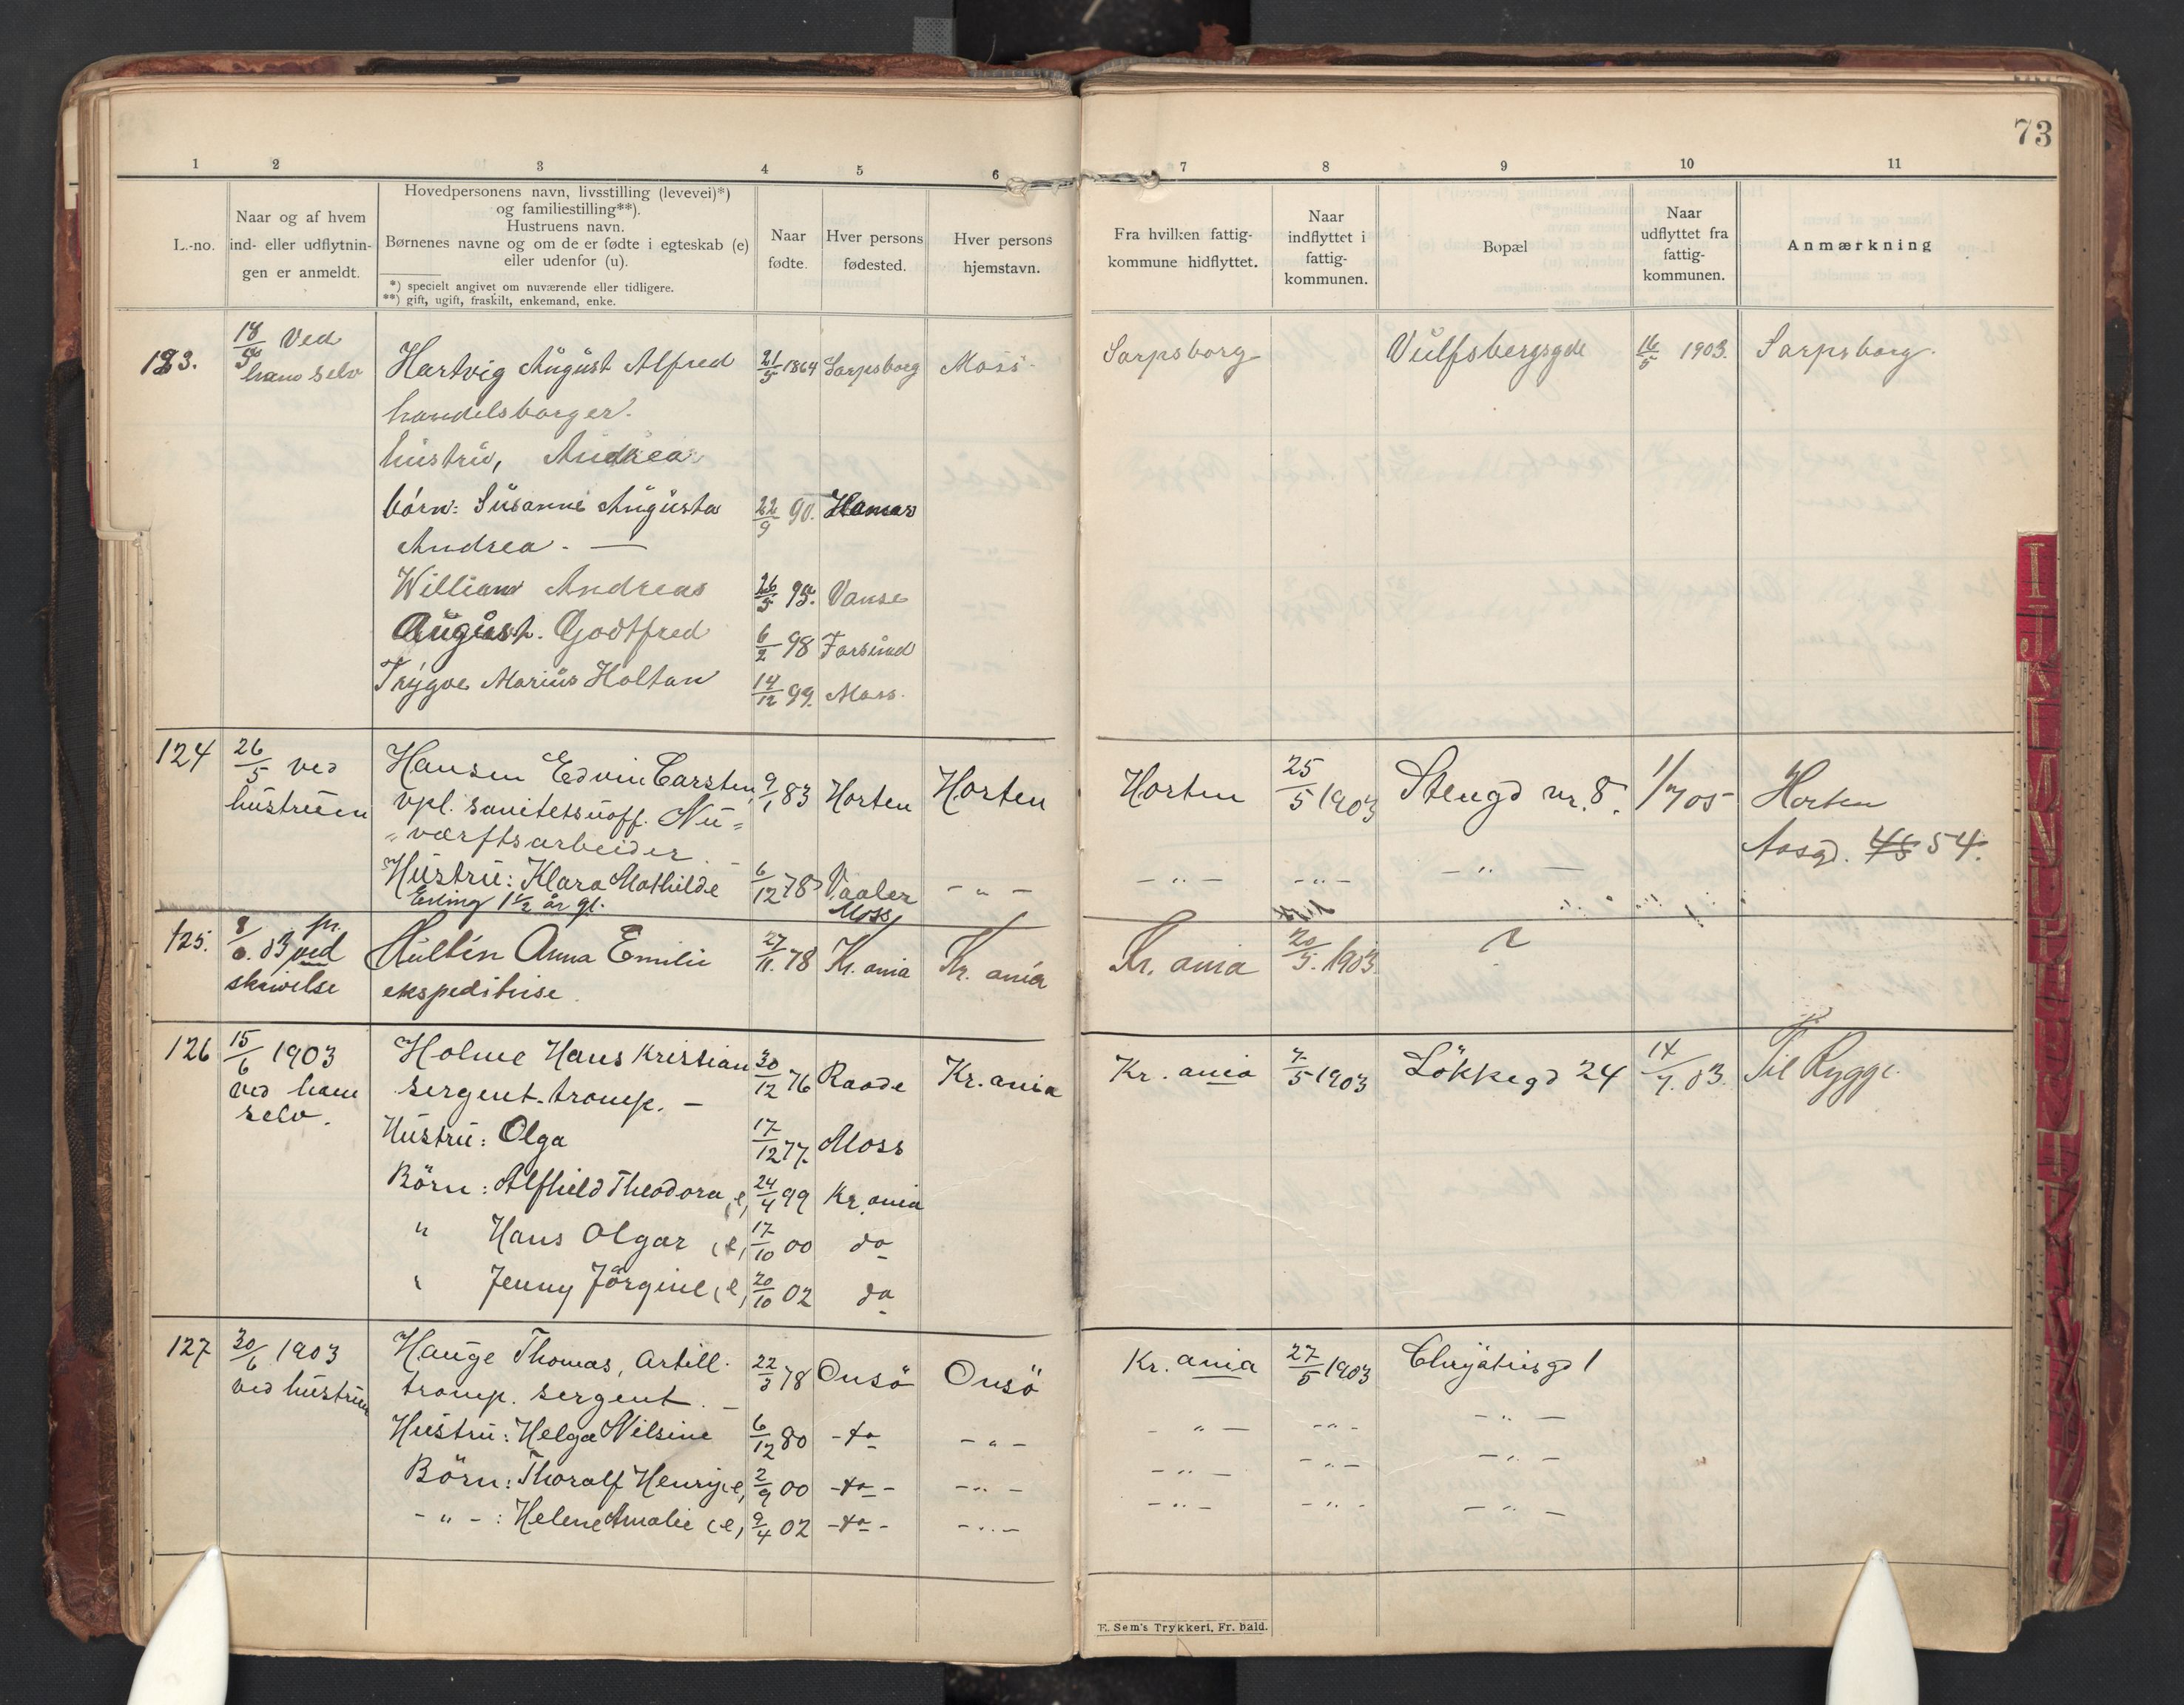 73
1 2 3 4 5 6 7 8 9 10 11
L.-no.
Naar og af hvem
ind- eller udflytnin-
gen er anmeldt.
Hovedpersonens navn, livsstilling (levevei)*)
og familiestilling**).
Hustruens navn.
Børnenes navne og om de er fødte i egteskab (e)
eller udenfor (u).
*) specielt angivet om nuværende eller tidligere.
**) gift, ugift, fraskilt, enkemand, enke.
Naar
fødte.
Hver persons
fødested.
Hver persons
hjemstavn.
Fra hvilken fattig-
kommune hidflyttet.
Naar
indflyttet i
fattig-
kommunen.
Bopæl
Naar
udflyttet fra
fattig-
kommunen.
Anmærkning
123. 18/5 Ved Hartvig August Alfred 21/5 1864 Sarpsborg Moss Sarpsborg Vulfsbergsgde 16/5 1903. Sarpsborg.
ham selv
handelsborger.
hustru, Andrea
börn: Susanne Augusta 22/9 90. Hamar
Andrea. —
William Andreas 26/5 95. Vanse
August. Godtfred 6/2 98 Farsund
Trygve Marius Holtan 14/12 99. Moss.
124 26/5 ved Hansen Edvin Carsten, 9/1 83 Horten Horten Horten 25/5 1903 Stengd nr. 8. 1/7 05 Horten
hustruen vpl. sanitetsuoff. Nu=
"værftsarbeider. — Aasgd. 45 54.
Hustru: Klara Mathilde 6/12 78 Vaaler — " — — " — — " — — " —
Erling 1½ år gl. Moss
125. 8/6. 03 pr. Hultin Anna Emilie 27/11. 78 Kr. ania Kr. ania Kr. ania 20/5. 1903 ?
ved
skrivelse ekspeditrise.
126 15/6 1903 Holme Hans Kristian 30/12 76 Raade Kr. ania Kr. ania 7/5 1903 Lökkegd 24 14/7. 03. Til Rygge.
ved ham sergent. tromp. —
selv. Hustru: Olga 17/12 77. Moss
Börn: Alfhild Theodora (e) 24/4 99 Kr. ania
" Hans Olgar (e) 17/10 00 do
" Jenny Jörgine (e) 20/10 02 do
127 30/6 1903 Hauge Thomas, Artill. 22/3 78 Onsö Onsö Kr. ania 27/5 1903 Chrystiesgd 1
ved hustruen tromp. sergent. —
Hustru: Helga Nilsine 6/12 80 - do - " - - " - - " - - " -
Börn: Thoralf Henry (e) 2/9 00 - do - - " - - " - - " - - " -
- " - : Helene Amalie (e) 9/4 02 - do - - " - - " - - " - - " -
E. Sem's Trykkeri, Fr. hald.